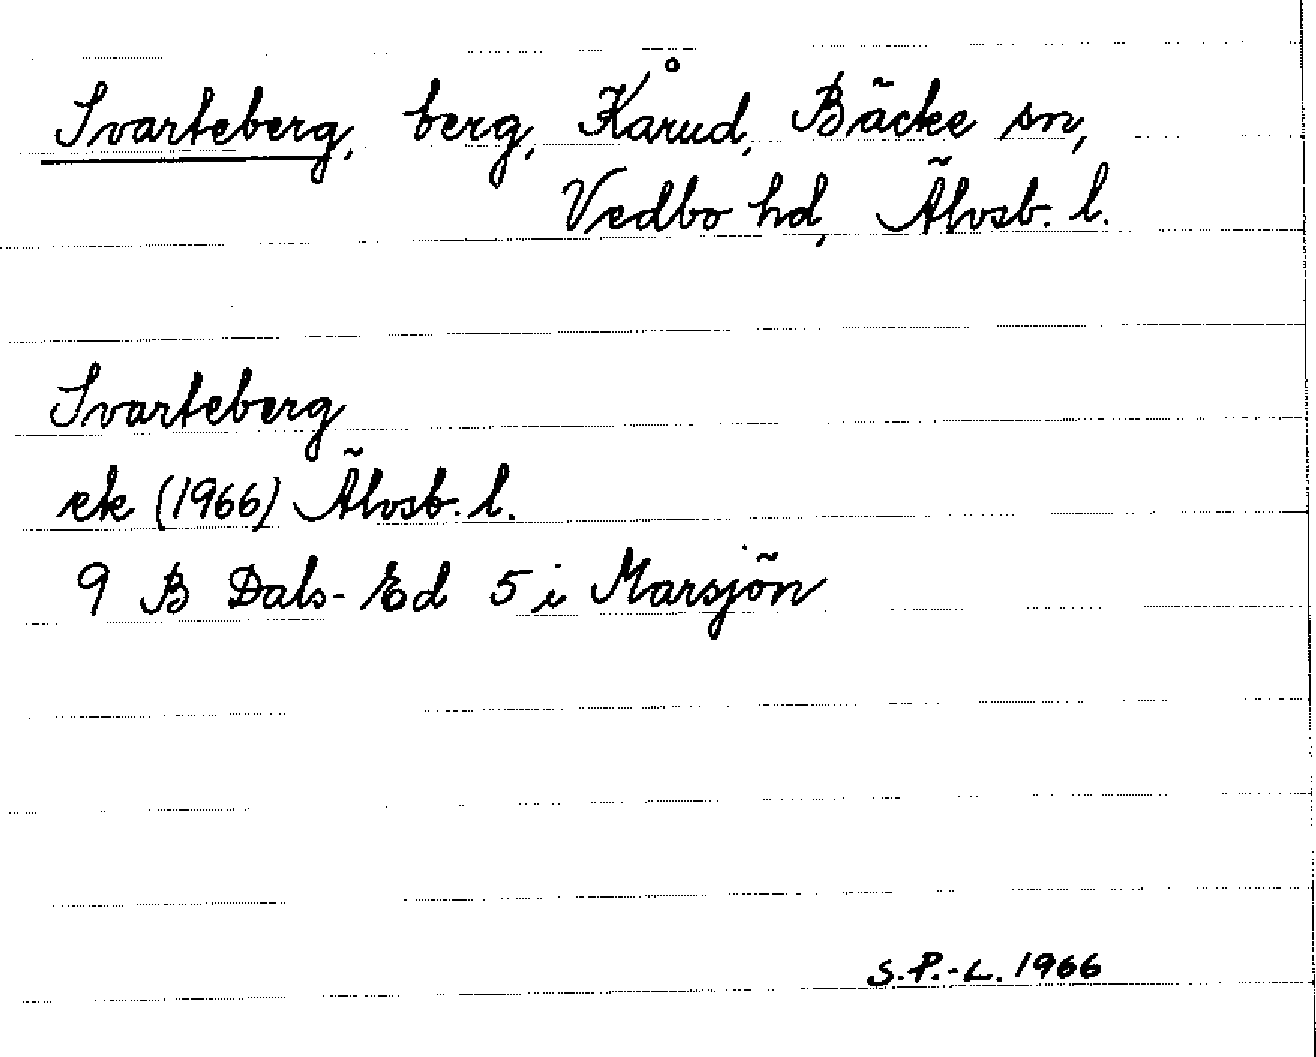 Svarteberg, berg, Kårud, Bäcke sn,
Vedbo hd, Älvsb. l.
Svarteberg
ek (1966) Älvsb. l.
9 B Dals-Ed 5 i Marsjön
S.P.-L. 1966